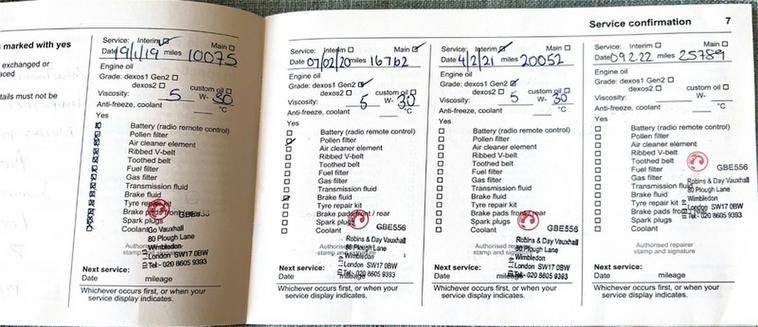 s marked with yes
exchanged or
aced
tails must not be
Service: Interim ☑ Main ☐
Date 19/1/19 miles 10075
Engine oil
Grade: dexos1 Gen2 ☐
dexos2 ☐ custom oil ☐
Viscosity: 5 W- 30
Anti-freeze, coolant °C
Yes
Battery (radio remote control)
Pollen filter
Air cleaner element
Ribbed V-belt
Toothed belt
Fuel filter
Gas filter
Transmission fluid
Brake fluid
Tyre repair kit
Brake pads front / rear
Spark plugs
Coolant
Go Vauxhall
80 Plough Lane
Wimbledon
London SW17 0BW
Tel:- 020 8605 9393
Next service:
Date mileage
Whichever occurs first, or when your
service display indicates.
Service confirmation 7
Service: Interim ☐ Main ☑
Date 07/02/20 miles 16762
Engine oil
Grade: dexos1 Gen2 ☑
dexos2 ☐ custom oil ☐
Viscosity: 5 W- 30
Anti-freeze, coolant °C
Yes
Battery (radio remote control)
Pollen filter
Air cleaner element
Ribbed V-belt
Toothed belt
Fuel filter
Gas filter
Transmission fluid
Brake fluid
Tyre repair kit
Brake pads front / rear
Spark plugs
Coolant GBE556
Robins & Day Vauxhall
80 Plough Lane
Wimbledon
London SW17 0BW
Tel:- 020 8605 9393
Next service:
Date mileage
Whichever occurs first, or when your
service display indicates.
Service: Interim ☑ Main ☐
Date 4/2/21 miles 20052
Engine oil
Grade: dexos1 Gen2 ☑
dexos2 ☐ custom oil ☐
Viscosity: 5 W- 30
Anti-freeze, coolant °C
Yes
Battery (radio remote control)
Pollen filter
Air cleaner element
Ribbed V-belt
Toothed belt
Fuel filter
Gas filter
Transmission fluid
Brake fluid
Tyre repair kit
Brake pads front / rear
Spark plugs
Coolant GBE556
Robins & Day Vauxhall
80 Plough Lane
Wimbledon
London SW17 0BW
Tel:- 020 8605 9393
Next service:
Date mileage
Whichever occurs first, or when your
service display indicates.
Service: Interim ☐ Main ☐
Date 09.2.22 miles 25789
Engine oil
Grade: dexos1 Gen2 ☐
dexos2 ☐ custom oil ☐
Viscosity: W-
Anti-freeze, coolant °C
Yes
Battery (radio remote control)
Pollen filter
Air cleaner element
Ribbed V-belt
Toothed belt
Fuel filter GBE556
Gas filter
Transmission fluid Robins & Day Vauxhall
Brake fluid 80 Plough Lane
Tyre repair kit Wimbledon
Brake pads London SW17 0BW
Spark plugs Tel:- 020 8605 9393
Coolant
Authorised repairer
stamp and signature
Next service:
Date mileage
Whichever occurs first, or when your
service display indicates.